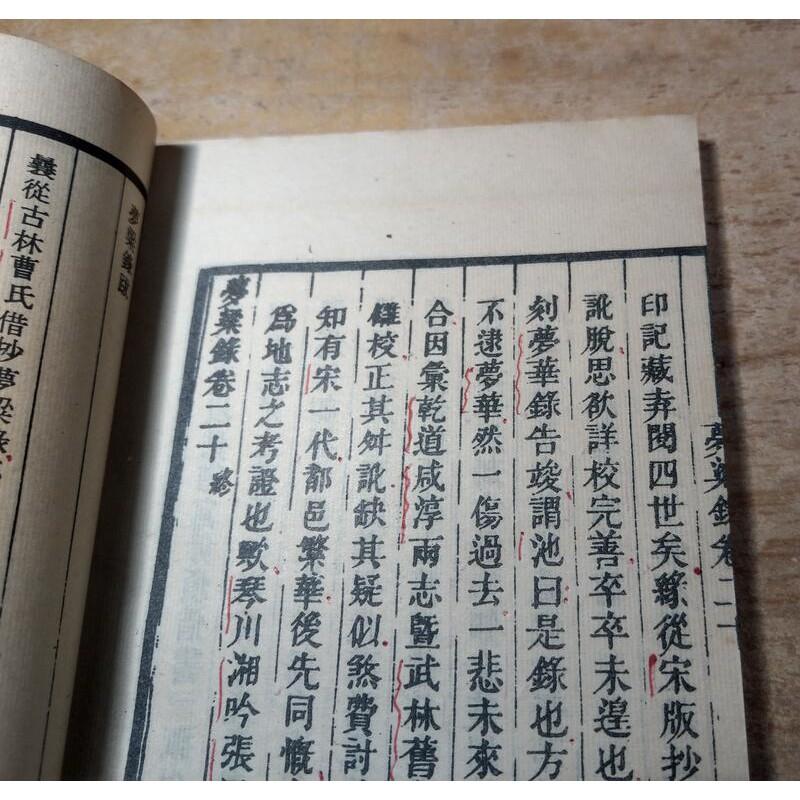 夢粱錄卷二十
印記藏弆閱四世矣緣從宋版抄
訛脫思欲詳校完善卒卒未遑也
刻夢華錄告竣謂池曰是錄也方
不逮夢華然一傷過去一悲未來
合因彙乾道咸淳兩志暨武林舊
讎校正其舛訛缺其疑似煞費討
知有宋一代都邑繁華後先同慨
爲地志之考證也歟琴川湘吟張
夢粱錄卷二十終
夢粱錄跋
曩從古林曹氏借抄夢粱錄